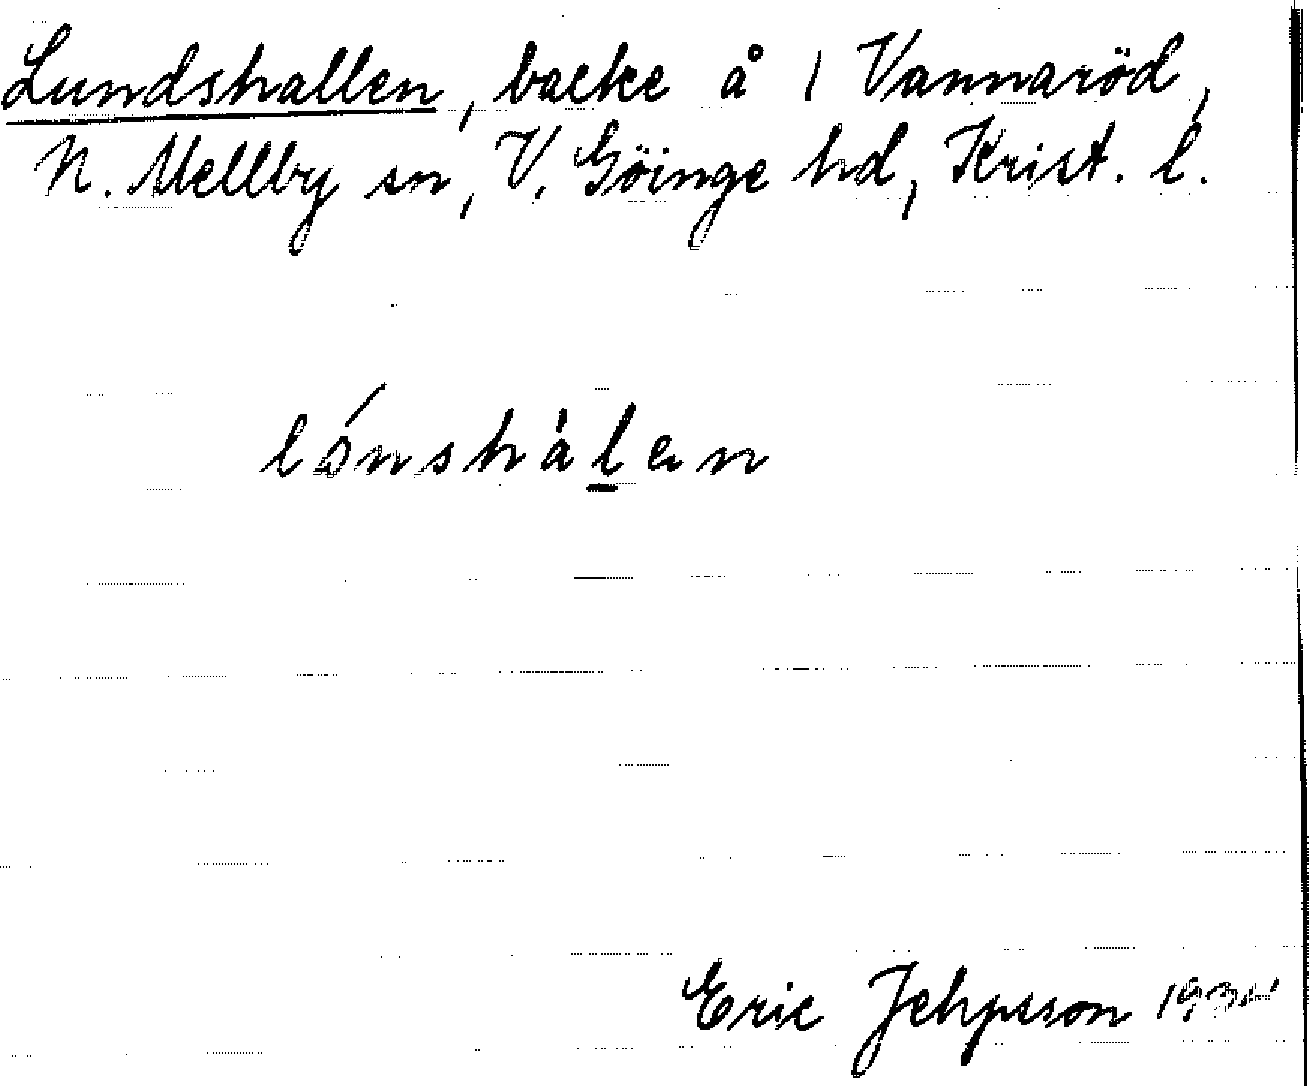 Lundshallen, backe å 1 Vannaröd,
N. Mellby sn, V. Göinge hd, Krist. l.
lónshàlen
Eric Jehpsson